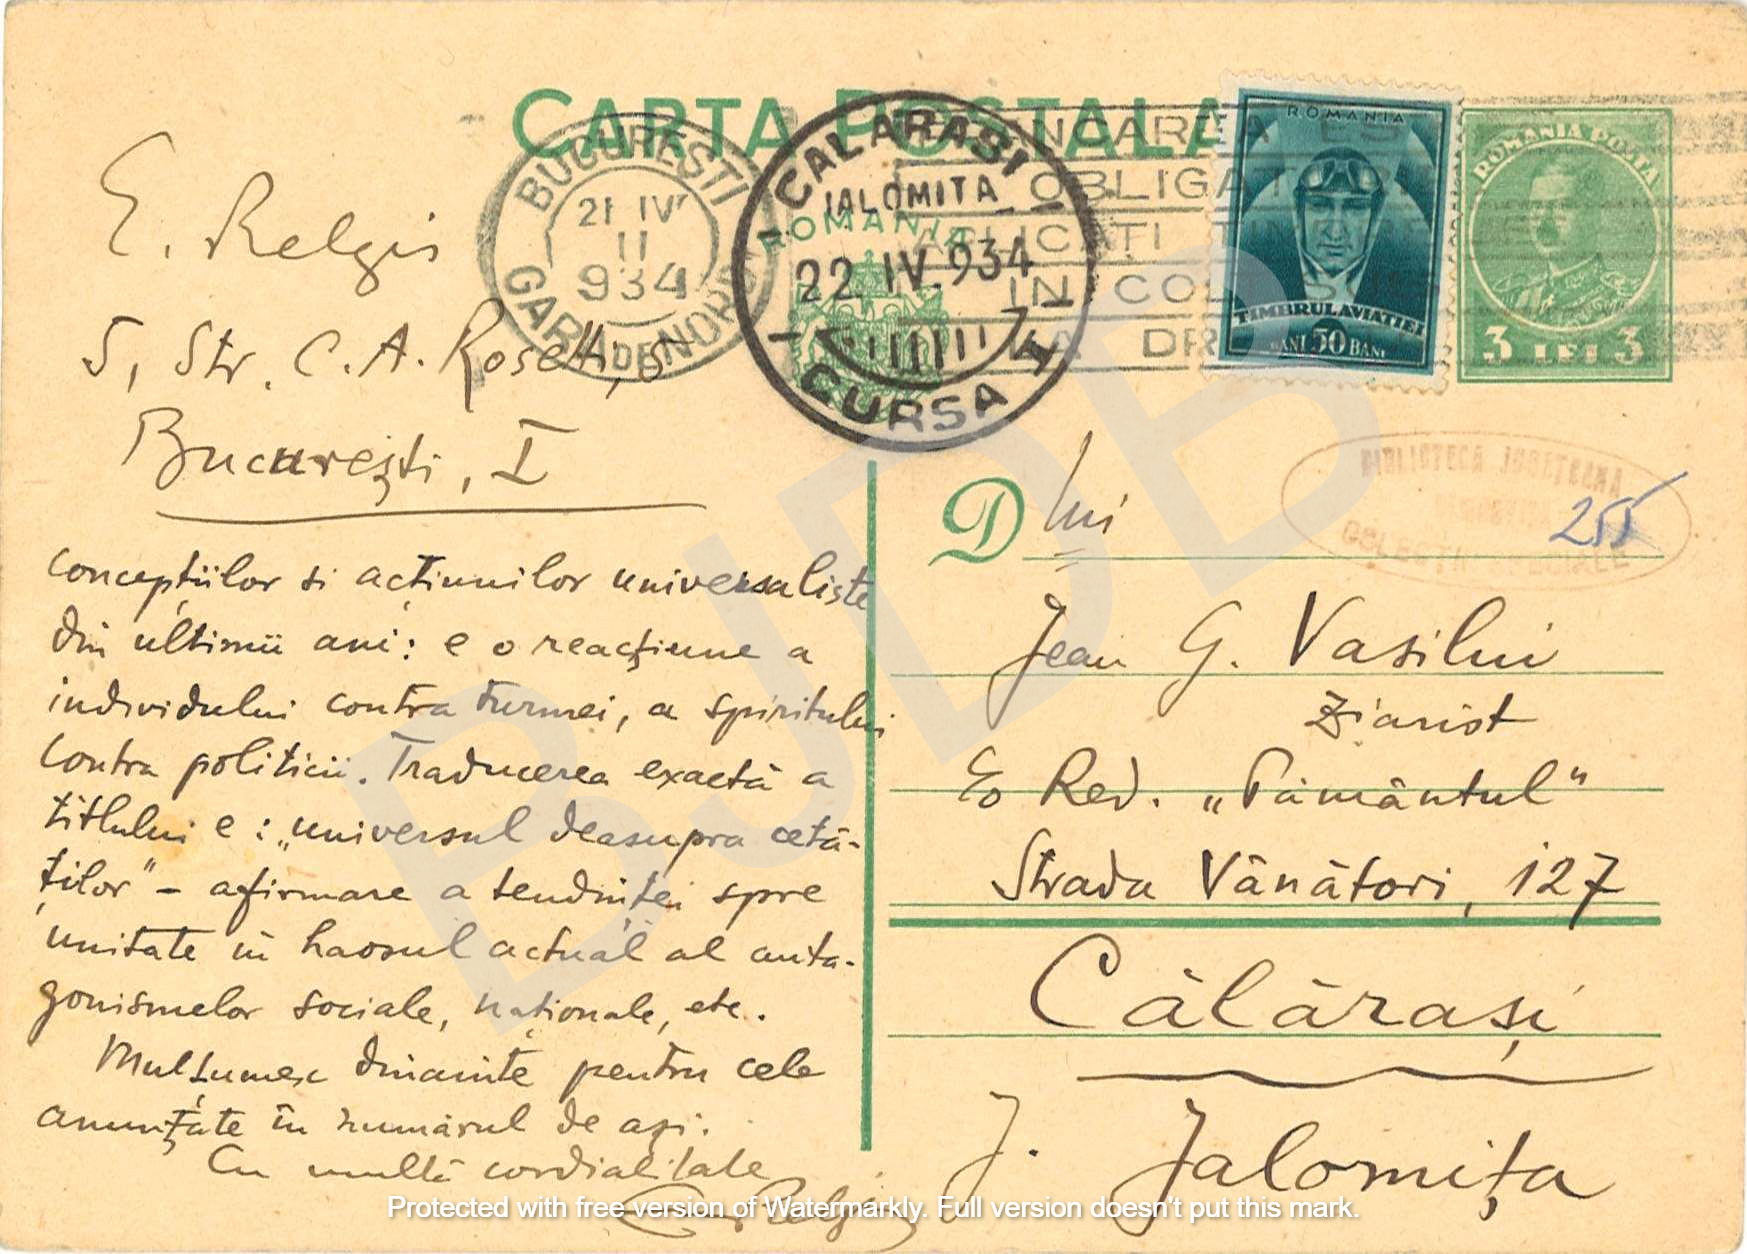 CARTA POSTALA
BUCURESTI
21 IV
11
934
GARA DE NORD
CALARASI
IALOMITA
22 IV. 934
CURSA
ROMANIA
OBLIGAT
IN COL
ROMANIA
TIMBRUL AVIATIEI
BANI 50 BANI
ROMANIA POSTA
3 LEI 3
E. Relgis
5, Str. C. A. Rosetti, 5
București, I
concepțiilor si acțiunilor universaliste
din ultimii ani: e o reacțiune a
individului contra turmei, a spiritului
contra politicii. Traducerea exactă a
titlului e: „universul deasupra cetă-
ților" – afirmare a tendinței spre
unitate în haosul actual al anta-
gonismelor sociale, naționale, etc.
Mulțumesc dinainte pentru cele
anunțate în numărul de azi.
Cu multă cordialitate
E. Relgis
D lui
255
BIBLIOTECA JUDETEANA
Jean G. Vasiliu
Ziarist
Red. „Pământul"
Strada Vânători, 127
Călărași
J. Jalomița
BJDB
Protected with free version of Watermarkly. Full version doesn't put this mark.